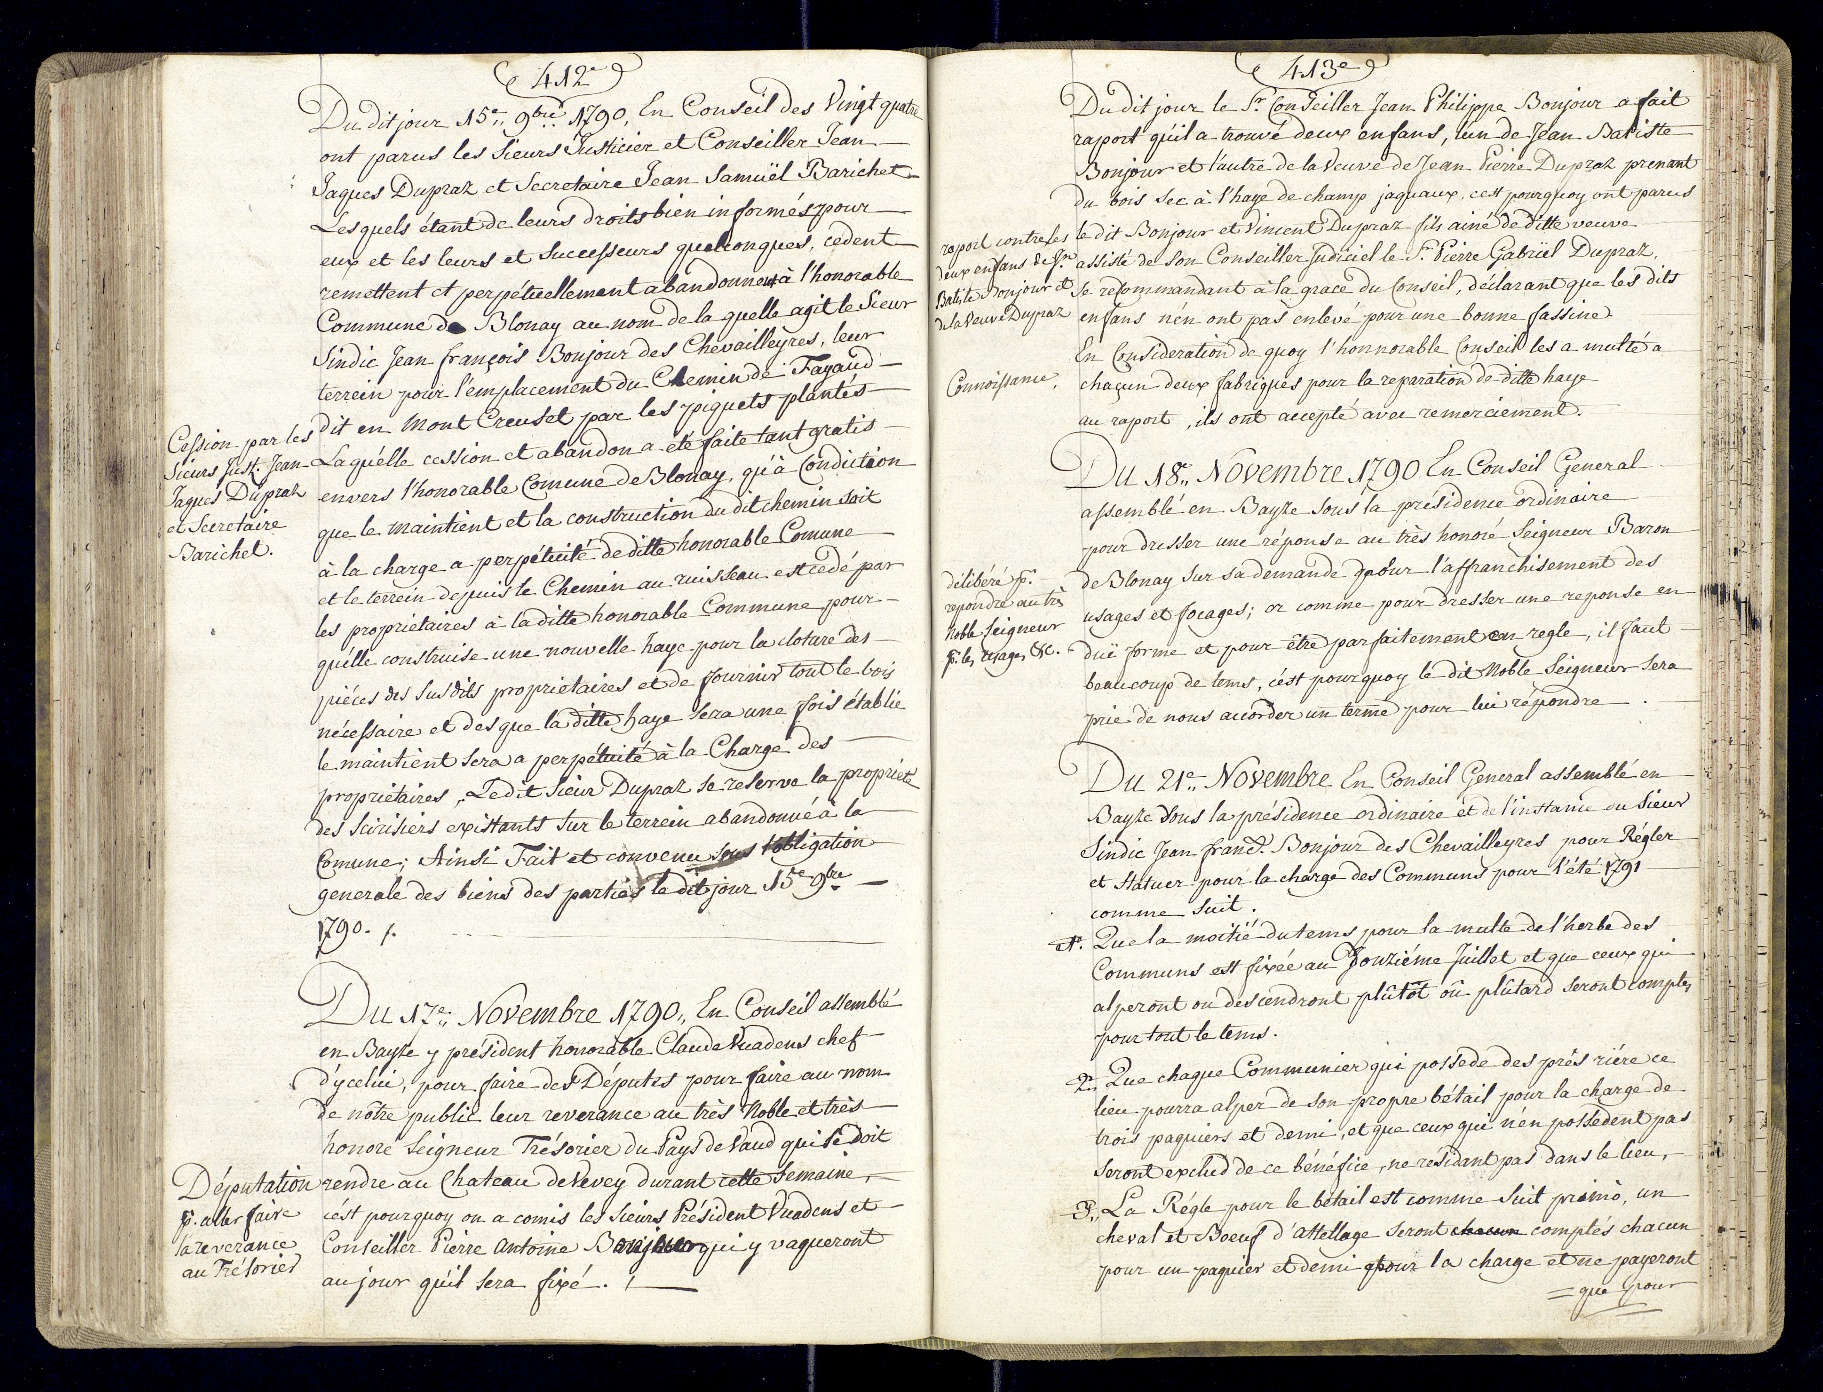 412e
Du dit jour 15e,, 9bre 1790, En Conseil des Vingt quatre
ont parus les Sieurs Justicier et Conseiller Jean
Jaques Dupraz et Secretaire Jean Samuël Barichet
Lesquels étant de leurs droits bien informés pour
eux et les leurs et Successeurs quelconques, cedent
remettent et perpétuellement abandonnent à l'honorable
Commune de Blonay au nom de la quelle agit le Sieur
Sindic Jean françois Bonjour des Chevailleyres, leur
terrein pour l'emplacement du Chemin de Fayaud
dit en Mont Creuset par les piquets plantés
Cession par les
Sieurs Just. Jean
Jaques Dupraz
et Secretaire
Barichet.
Laquélle cession et abandon a été faite tant gratis
envers l'honorable Comune de Blonay, qu'à Condiction
que le maintient et la construction du dit chemin soit
à la charge a perpétuité de ditte honorable Comune
et le terrein depuis le Chemin au ruisseau est cedé par
les proprietaires à la ditte honorable Commune pour
quélle construise une nouvelle haye pour la cloture des
piéces des susdits proprietaires et de fournir tout le bois
nécessaire et des que la ditte haye sera une fois établie
le maintient sera a perpétuité à la Charge des
propriétaires, Ledit Sieur Dupraz se reserve la propriété
des Scirisiers existants sur le terrein abandonné à la
Comune; Ainsi Fait et convenu sous l'obligation
generale des biens des parties le dit jour 15e 9bre
1790. /.
Du 17e,, Novembre 1790,, En Conseil assemblé
en Bayse y président honorable Claude Vuadens chef
d'ycelui, pour faire des Députés pour faire au nom
de nôtre public leur reverance au très Noble et très
honoré Seigneur Trésorier du Pays de Vaud qui se doit
Députation
p. aller faire
la reverance
au Trésorier
rendre au Chateau de Vevey durant cette semaine,
c'ést pourquoy on a comis les Sieurs Président Vuadens et
Conseiller Pierre Antoine Bonjour qui y vaqueront
au jour quil sera fixé. /
413e
Du dit jour le Sr. Conseiller Jean Philippe Bonjour a fait
raport qu'il a trouvé deux enfans, lun de Jean Batiste
Bonjour et l'autre de la Veuve de Jean Pierre Dupraz prenant
du bois sec à l'haye de champ jaquaux, cest pourquoy ont parus
raport contre les
deux enfans de Jn.
Batiste Bonjour et
de la Veuve Dupraz
le dit Bonjour et Vincent Dupraz fils ainé de ditte veuve
assisté de son Conseiller Judiciel le Sr. Pierre Gabriël Dupraz,
se recommandant à la grace du Conseil, déclarant que les dits
enfans n'én ont pas enlevé pour une bonne fassine
En Consideration de quoy l'honnorable Conseil les a multé a
Connoissance,
chaçun deux fabriques pour la reparation de ditte haye
au raport, ils ont accepté avec remerciement.
Du 18e,, Novembre 1790 En Conseil General
assemblé en Bayse sous la présidence ordinaire
pour dresser une réponse au très honoré Seigneur Baron
délibéré p.
repondre au très
Noble Seigneur
p. les usages &c.
de Blonay sur sa demande pour l'affranchisement des
usages et focages; or comme pour dresser une reponse en
duë forme et pour être parfaitement en regle, il faut
beaucoup de tems, c'ést pourquoy le dit Noble Seigneur sera
prié de nous accorder un terme pour lui répondre.
Du 21e,, Novembre En Conseil General assemblé en
Bayse sous la présidence ordinaire et de l'instance du Sieur
Sindic Jean franç. Bonjour des Chevailleyres pour Régler
et statuer pour la charge des Communs pour l'été 1791
comme suit.
1o. Que la moitié du tems pour la multe de l'herbe des
Communs est fixée au Douziéme Juillet et que ceux qui
alperont ou descendront plûtôt ou plûtard seront comptés
pour tout le tems.
2o,, Que chaque Communier qui possede des prés riére ce
lieu pourra alper de son propre bétail pour la charge de
trois paquiers et demi, et que ceux qui n'én possédent pas
seront exclud de ce bénéfice, ne résidant pas dans le lieu,
3o,, La Régle pour le bétail est comme suit primò, un
cheval et Boeuf d'attellage seront chacun comptés chacun
pour un paquier et demi pour la charge et ne payeront
= que pour